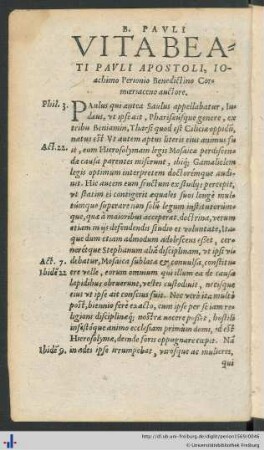 B. PAVLI
VITA BEA-
TI PAVLI APOSTOLI, IO-
achimo Perionio Benedictino Cor-
mœriaceno auctore.
Phil. 3. PAulus qui antea Saulus appellabatur, Iu-
dæus, vt ipse ait, Pharisæúsque genere, ex
tribu Beniamin, Tharsi quod est Ciliciæ oppidū,
natus est. Vt autem aptus literis eius animus fu
Act. 22. it, eum Hierosolymam legis Mosaicæ perdiscen-
dæ causa parentes miserunt, ibiq; Gamalielem
legis optimum interpretem doctorémque audiit.
Hic autem eum fructum ex studijs percepit,
vt statim ei contigerit æquales suos longè mul-
túmque superare: non solùm legum institutorúmque,
quæ à maioribus acceperat, doctrina, verùm
etiam in ijs defendendis studio et voluntate, Ita-
que dum etiam admodum adolescens esset, cer-
neretque Stephanum aliā disciplinam, vt ipsi vi-
Act. 7. debatur, Mosaica sublata & conuulsa, constitu-
Ibidē 22 ere velle, eorum omnium qui illum ea de causa
lapidibus obruerunt, vestes custodiuit, necisque
eius vt ipse ait conscius fuit. Nec verò ita multò
pòst, biennio ferè exacto, cum ipse per se iam re-
ligioni disciplinæq; nostræ nocere posset, hostili
infestóque animo ecclesiam primùm domi, id est
Hierosolymæ, deinde foris oppugnare cœpit. Nā
Ibidē 9. in ædes ipse irrumpebat, virósque ac mulieres,
qui
http://dl.ub.uni-freiburg.de/diglit/perion1569/0046
© Universitätsbibliothek Freiburg